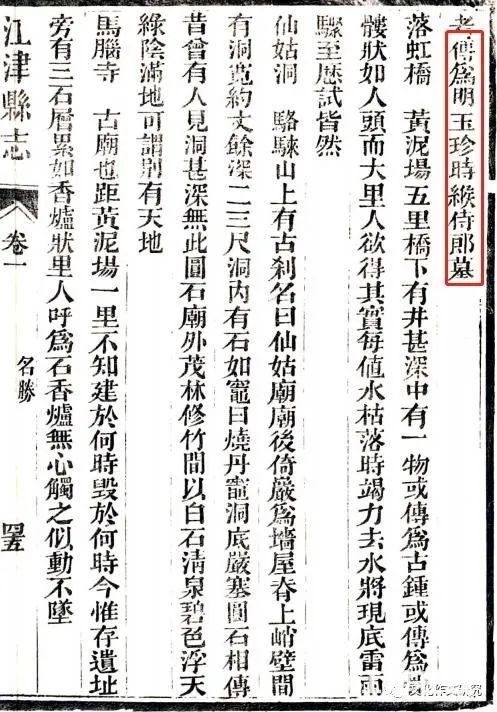 老傳爲明玉珍時緱侍郎墓
落虹橋　黃泥場五里橋下有井甚深中有一物或傳爲古鍾或傳爲
髏狀如人頭而大里人欲得其實每値水枯落時竭力去水將現底雷雨
驟至歷試皆然
仙姑洞　駱騋山上有古刹名曰仙姑廟廟後倚巖爲墻屋脊上峭壁間
有洞寬約丈餘深二三尺洞內有石如竈曰燒丹竈洞底嚴塞圓石相傳
昔曾有人見洞甚深無此圓石廟外茂林修竹間以白石淸泉碧色浮天
綠陰滿地可謂別有天地
馬腦寺　古廟也距黃泥場一里不知建於何時毀於何時今惟存遺址
旁有三石層累如香爐狀里人呼爲石香爐無心觸之似動不墜
江津縣志　卷一　名勝　四五